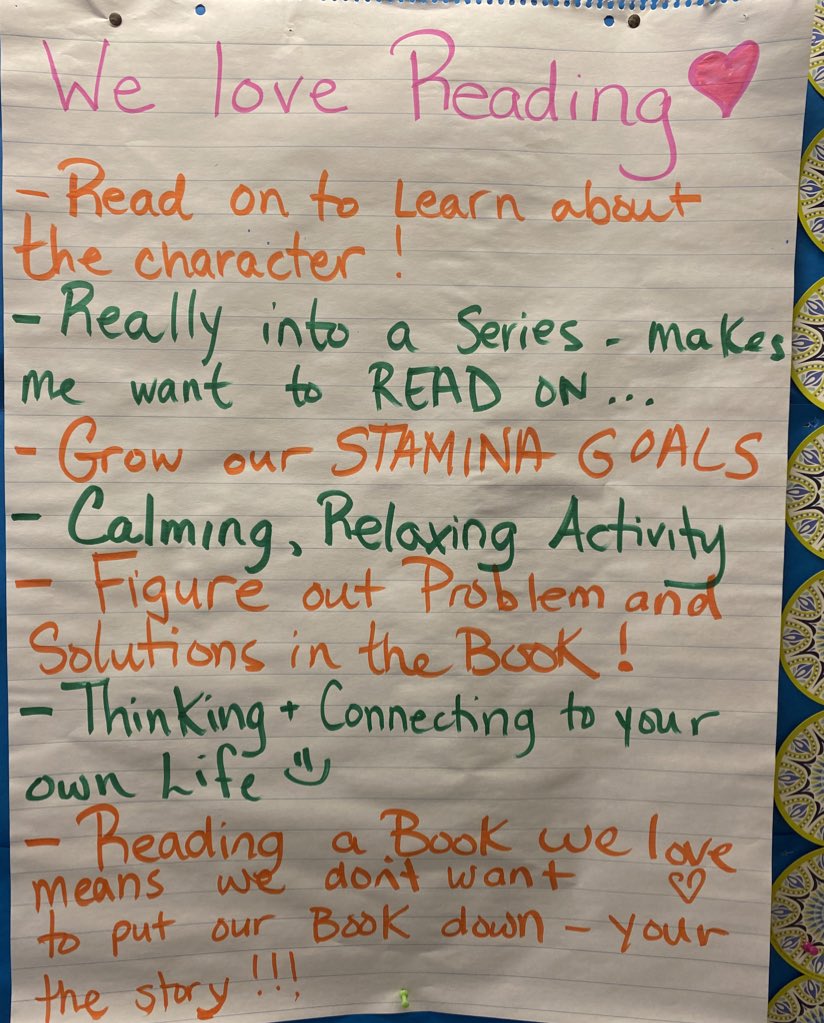 We love Reading
- Read on to Learn about
the character!
- Really into a Series - makes
me want to READ ON...
- Grow our STAMINA GOALS
- Calming, Relaxing Activity
- Figure out Problem and
Solutions in the Book!
- Thinking + Connecting to your
own Life
- Reading a Book we love
means we don't want
to put our Book down - your
the story!!!